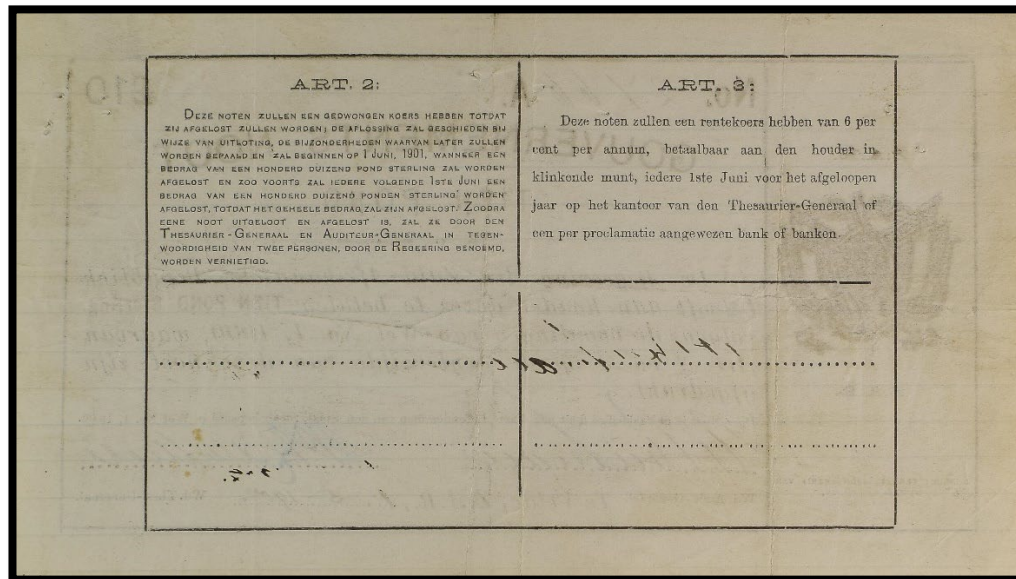 ART. 2:
DEZE NOTEN ZULLEN EEN GEDWONGEN KOERS HEBBEN TOTDAT
ZIJ AFGELOST ZULLEN WORDEN; DE AFLOSSING ZAL GESCHIEDEN BIJ
WIJZE VAN UITLOTING, DE BIJZONDERHEDEN WAARVAN LATER ZULLEN
WORDEN BEPAALD EN ZAL BEGINNEN OP 1 JUNI, 1901, WANNEER EEN
BEDRAG VAN EEN HONDERD DUIZEND POND STERLING ZAL WORDEN
AFGELOST EN ZOO VOORTS ZAL IEDERE VOLGENDE 1STE JUNI EEN
BEDRAG VAN EEN HONDERD DUIZEND PONDEN STERLING WORDEN
AFGELOST, TOTDAT HET GEHEELE BEDRAG ZAL ZIJN AFGELOST. ZOODRA
EENE NOOT UITGELOOT EN AFGELOST IS, ZAL ZE DOOR DEN
THESAURIER-GENERAAL EN AUDITEUR-GENERAAL IN TEGEN-
WOORDIGHEID VAN TWEE PERSONEN, DOOR DE REGEERING BENOEMD,
WORDEN VERNIETIGD.
ART. 3:
Deze noten zullen een rentekoers hebben van 6 per
cent per annum, betaalbaar aan den houder in
klinkende munt, iedere 1ste Juni voor het afgeloopen
jaar op het kantoor van den Thesaurier-Generaal of
een per proclamatie aangewezen bank of banken.